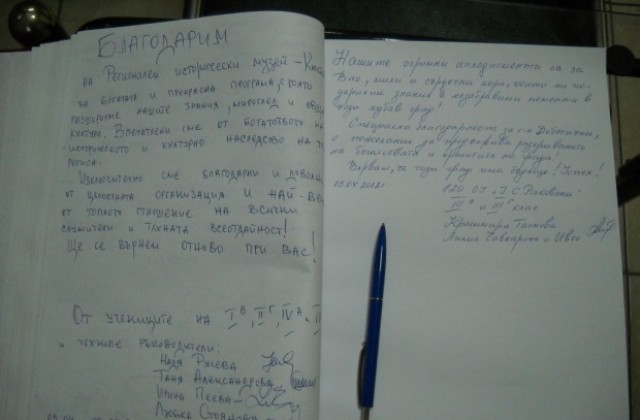 БЛАГОДАРИМ
на Регионален исторически музей -
за богатата и прекрасна програма, с която
разширихме нашите знания, мироглед и
култура. Впечатлени сме от богатството на
историческото и културно наследство на
региона.
Изключително сме благодарни и доволни
от цялостната организация и най-вече
от топлото отношение на всички
служители и тяхната всеотдайност!
Ще се върнем отново при вас!
От учениците на I в, II г, IV а,
и техните ръководители:
Надя Ружева
Таня Александрова
Ирина Пеева
Любка Стоянова
Нашите огромни аплодисменти са за
Вас, мили и сърдечни хора, които ни
подарихте знания и незабравими моменти в
този хубав град!
Специална благодарност за г-н
с пожелание да продължава разкриването
на богатствата и красотите на града!
Вярвам, че този град има бъдеще! Успех!
120 ОУ "Г. С. Раковски"
клас
Красимира
Анелия и Иво